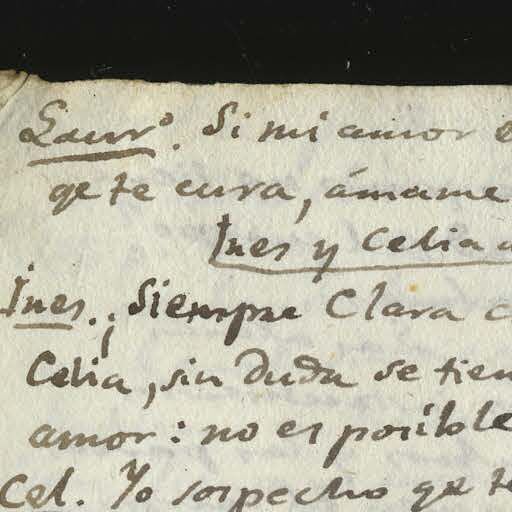 Laurº. Si mi amor
qe te cura, ámame
Ines y Celia
Ines. ¡Siempre Clara
Celia, sin duda se tien
amor: no es posible
Cel. Yo sospecho qe te